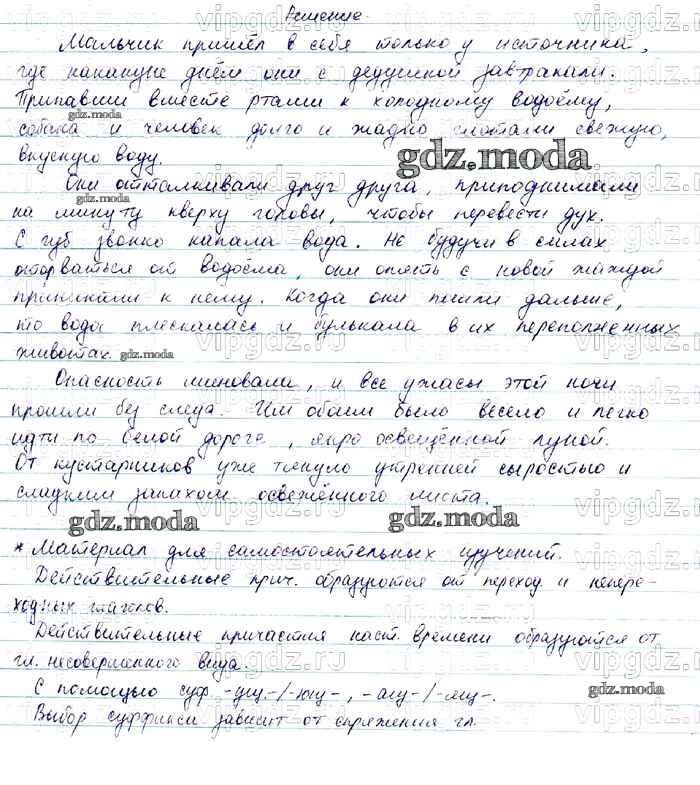 Решение.
Мальчик пришёл в себя только у источника,
где накануне днём они с дедушкой завтракали.
Припавши вместе ртами к холодному водоёму,
собака и человек долго и жадно глотали свежую,
gdz.moda
вкусную воду.
gdz.moda
Они отталкивали друг друга, приподнимали
на минуту кверху головы, чтобы перевести дух.
С губ звонко капала вода. Не будучи в силах
оторваться от водоёма, они опять с новой жаждой
приникали к нему. Когда они пошли дальше,
то вода плескалась и булькала в их переполненных
животах. gdz.moda
Опасность миновали, и все ужасы этой ночи
прошли без следа. Им обоим было весело и легко
идти по белой дороге, ярко освещённой луной.
От кустарников уже тянуло утренней сыростью и
сладким запахом освежённого листа.
gdz.moda gdz.moda gdz.moda
* Материал для самостоятельных изучений.
Действительные прич. образуются от переход. и непере-
ходных глаголов.
Действительные причастия наст. времени образуются от
гл. несовершенного вида.
С помощью суф. -ущ-/-ющ-, -ащ-/-ящ-.
gdz.moda
Выбор суффикса зависит от спряжения гл.
vipgdz.ru